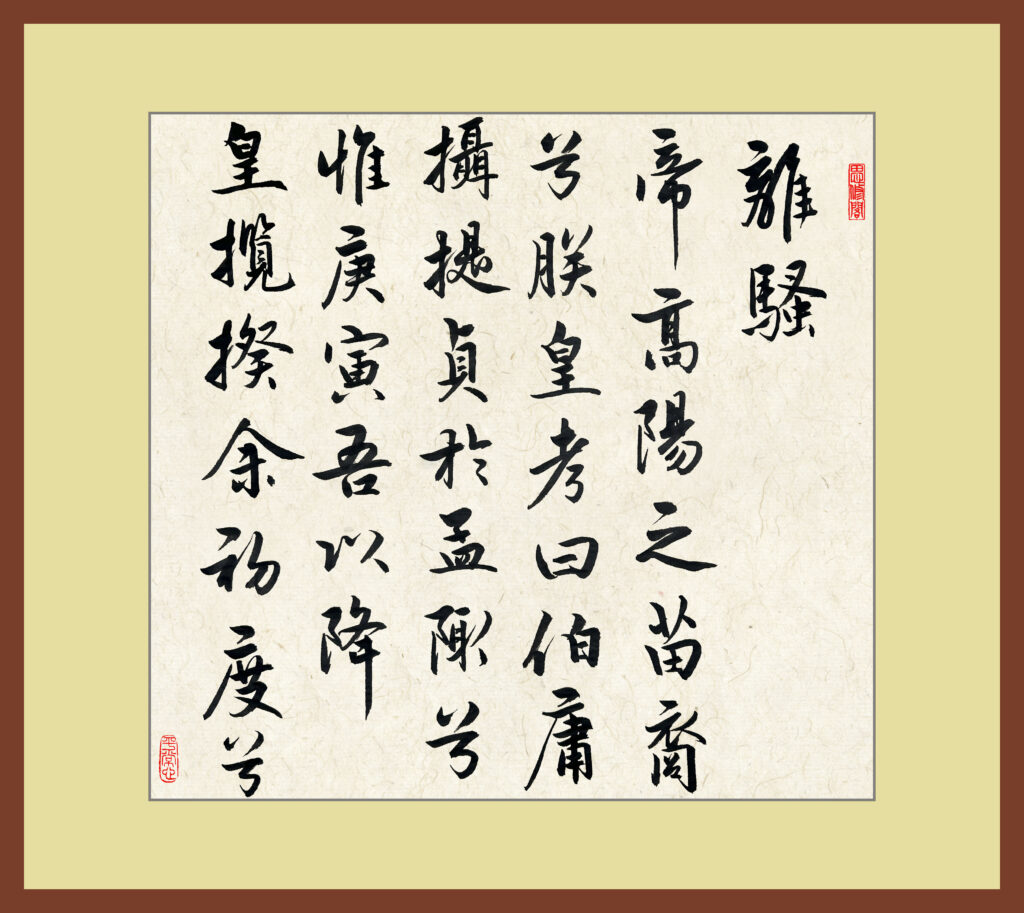 離騷
帝高陽之苗裔
兮朕皇考曰伯庸
攝提貞於孟陬兮
惟庚寅吾以降
皇攬揆余初度兮
思修閣
平常心